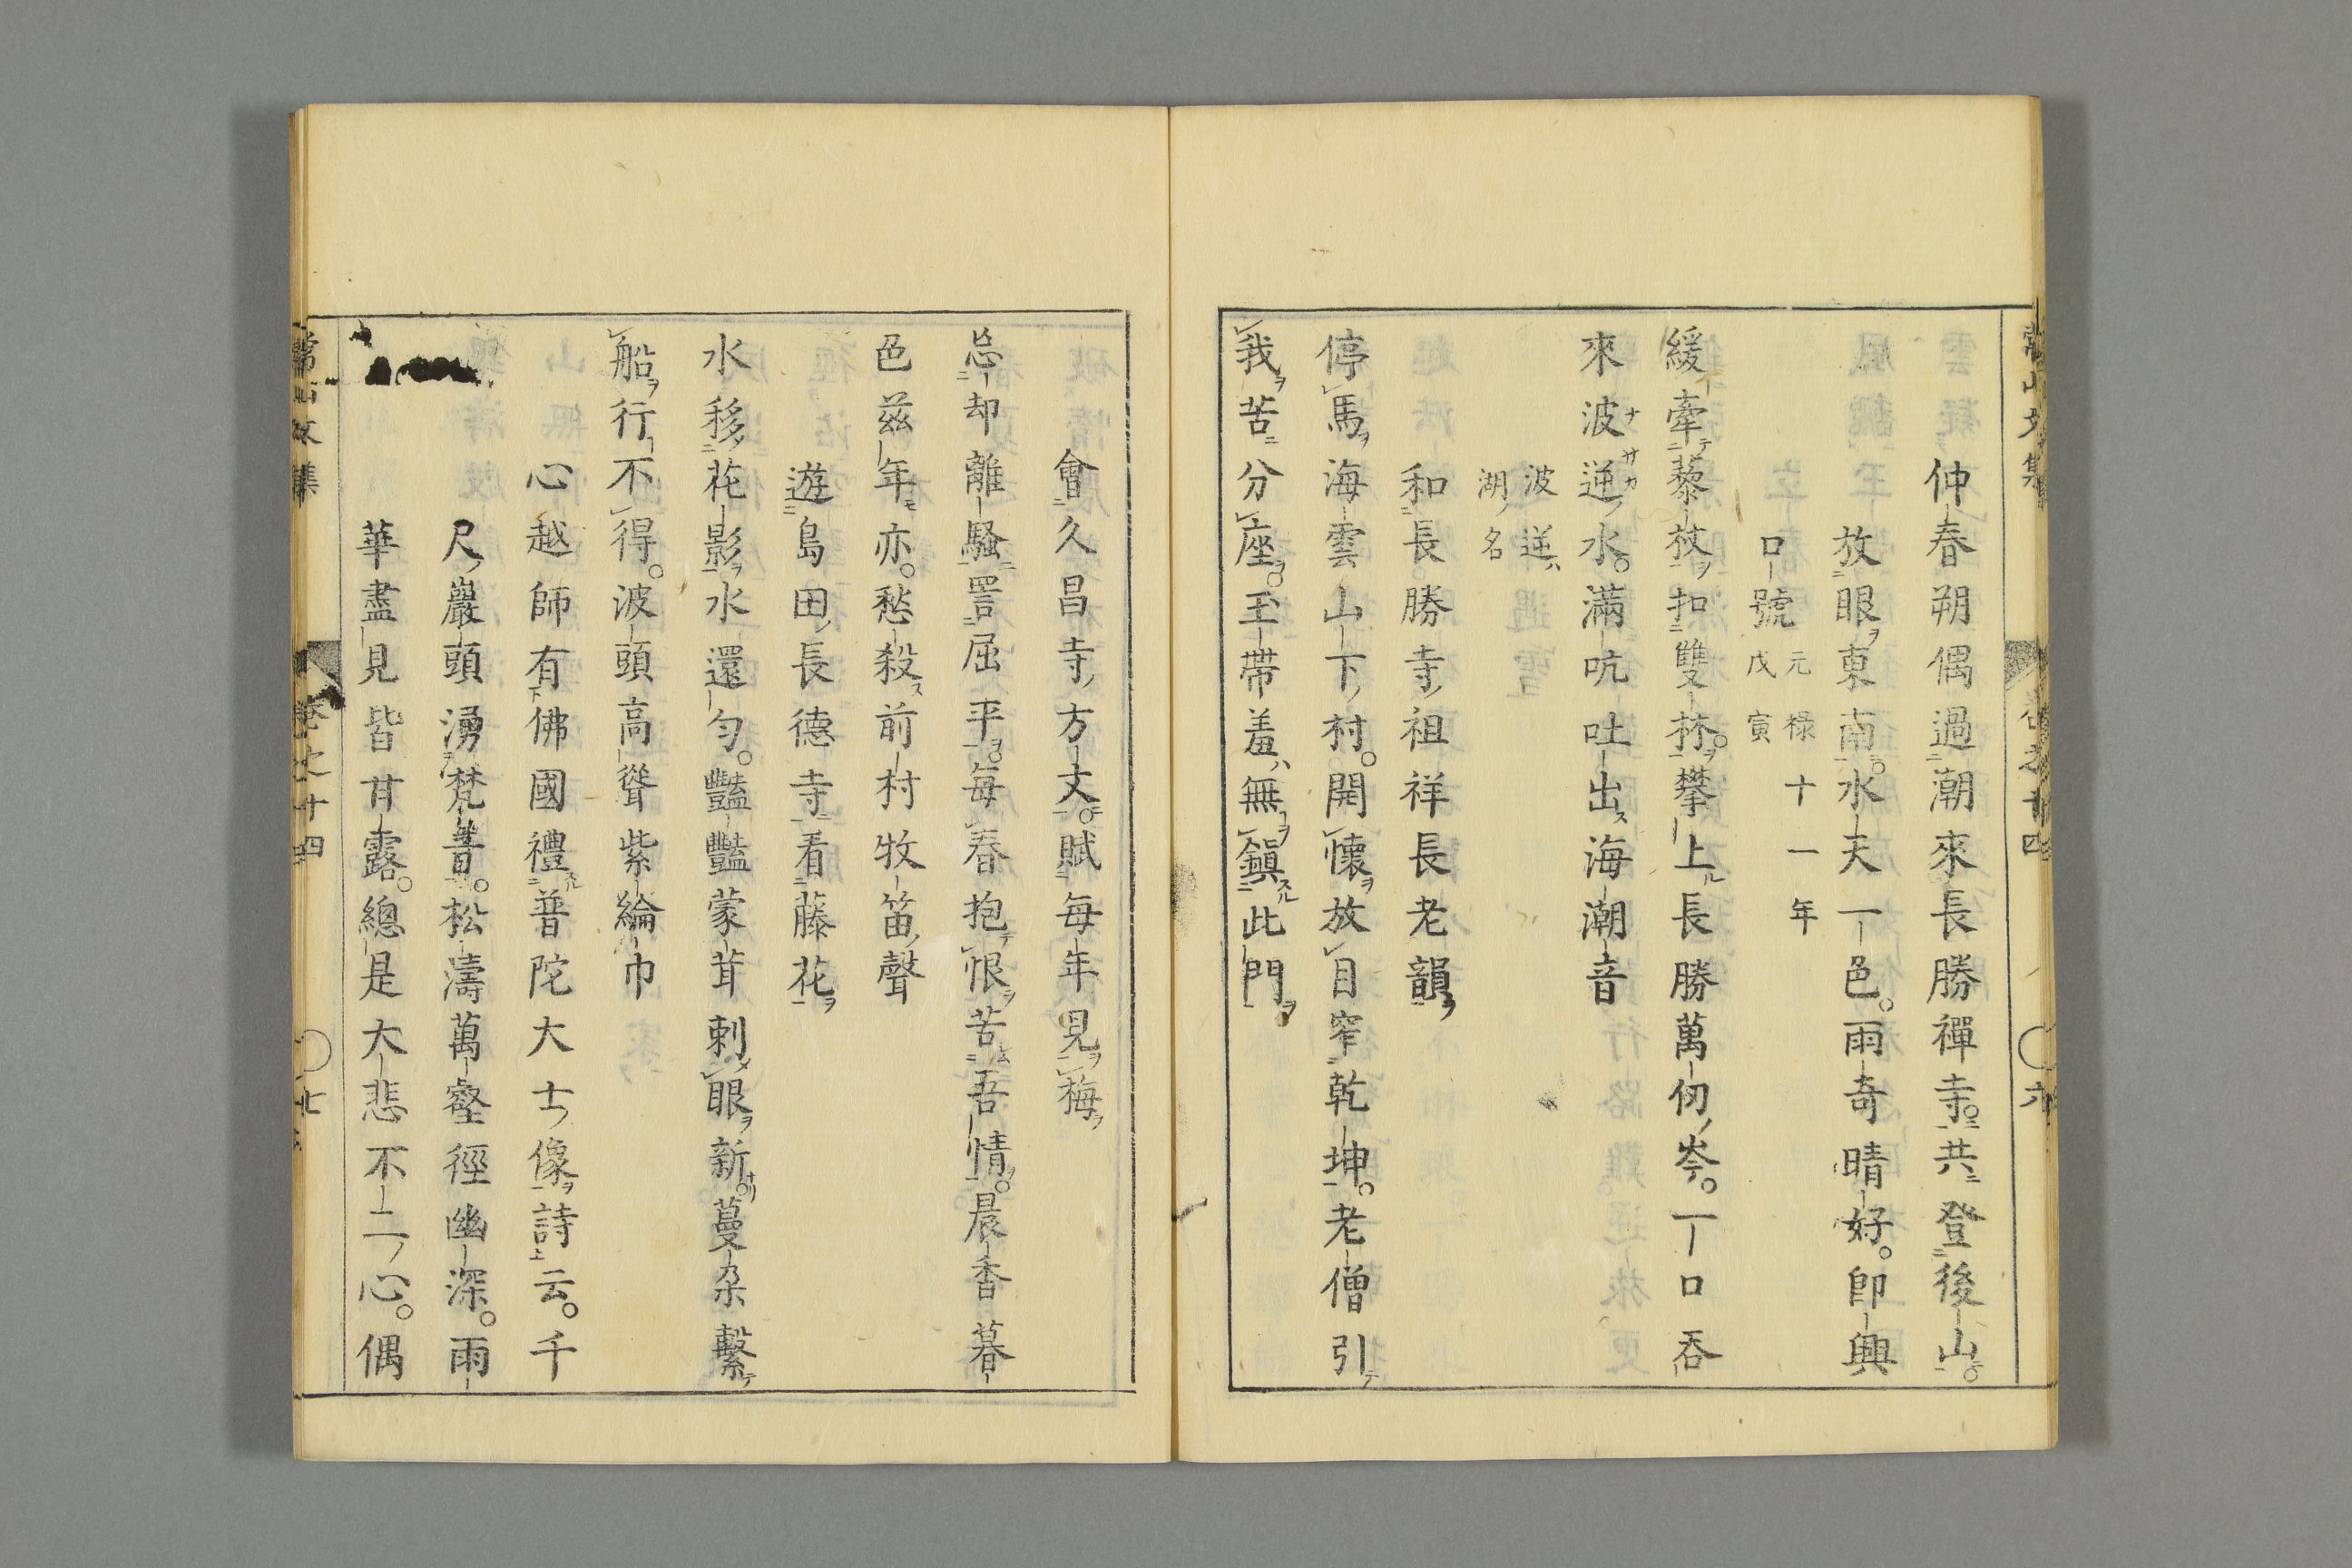 仲春朔偶過潮來長勝禪寺共登後山
放眼東南水天一色雨奇晴好即興
口號元祿十一年
戊寅
緩牽藜杖扣雙林攀上長勝萬仞岑一口吞
來波逆水滿吭吐出海潮音
波逆ハ
湖ノ名
和長勝寺祖祥長老韻
停馬海雲山下村開懷放目窄乾坤老僧引
我苦分座玉帶羞無鎮此門
會久昌寺方丈賦每年見梅
忘却離騷詈屈平每春抱恨苦吾情晨香暮
色茲年亦愁殺前村牧笛聲
遊島田長德寺看藤花
水移花影水還勻豔豔蒙茸刺眼新蔓朶繫
船行不得波頭高聳紫綸巾
心越師有佛國禮普陀大士像詩云千
尺巖頭湧梵音松濤萬壑徑幽深雨
華盡見皆甘露總是大悲不二心偶
常山文集
卷之十四
六
常山文集
卷之十四
七